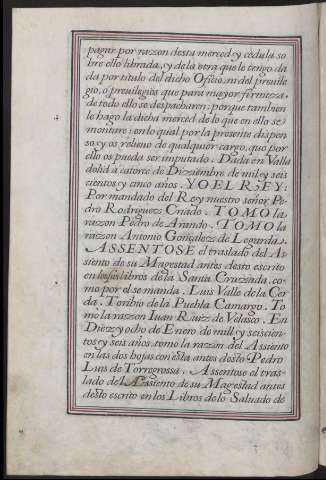 pagar por razon desta merced, y cedula so
bre ello librada, y de la otra que le tengo da
da por titulo del dicho Oficio, ni del preuile
gio, o preuilegios que para mayor firmeza
de todo ello se despacharen: porque tambien
le hago la dicha merced de lo que en ello se
montare: en lo qual por la presente dispen
so, y os relieuo de qualquier cargo, que por
ello os pueda ser imputado. Dada en Valla
dolid à catorce de Dizziembre de mil y seis
cientos y cinco años. YO EL REY:
Por mandado del Rey nuestro señor Pe
dro Rodriguez Criado. TOMO la
razon Pedro de Arando. TOMO la
razon Antonio Gonçalez de Legarda.
ASSENTOSE el traslado del As
siento de su Magestad antes desto escrito
en los libros de la Santa Cruzada, co
mo por el se manda. Luis Valle de la Cer
da. Toribio de la Puebla Camargo. To
mo la razon Iuan Ruiz de Velasco. En
Diez y ocho de Enero de mill y seiscien
tos y seis años, tomo la razon del Assiento
en las dos hojas con esta antes desto Pedro
Luis de Torregrossa. Assentose el tras
lado del Assiento de su Magestad antes
desto escrito en los Libros de lo Saluado de